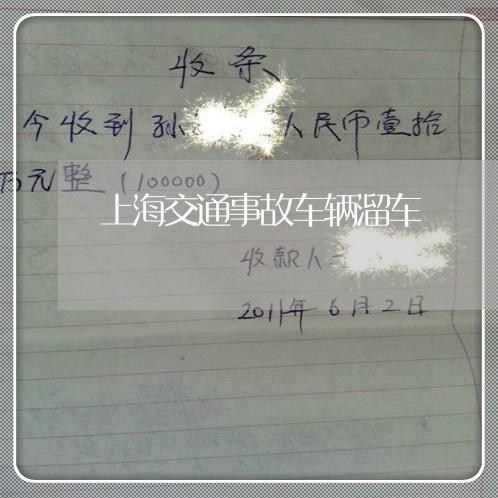 收条
今收到孙 人民币壹拾
万元整（100000）
上海交通事故车辆溜车
收款人
2011年6月2日